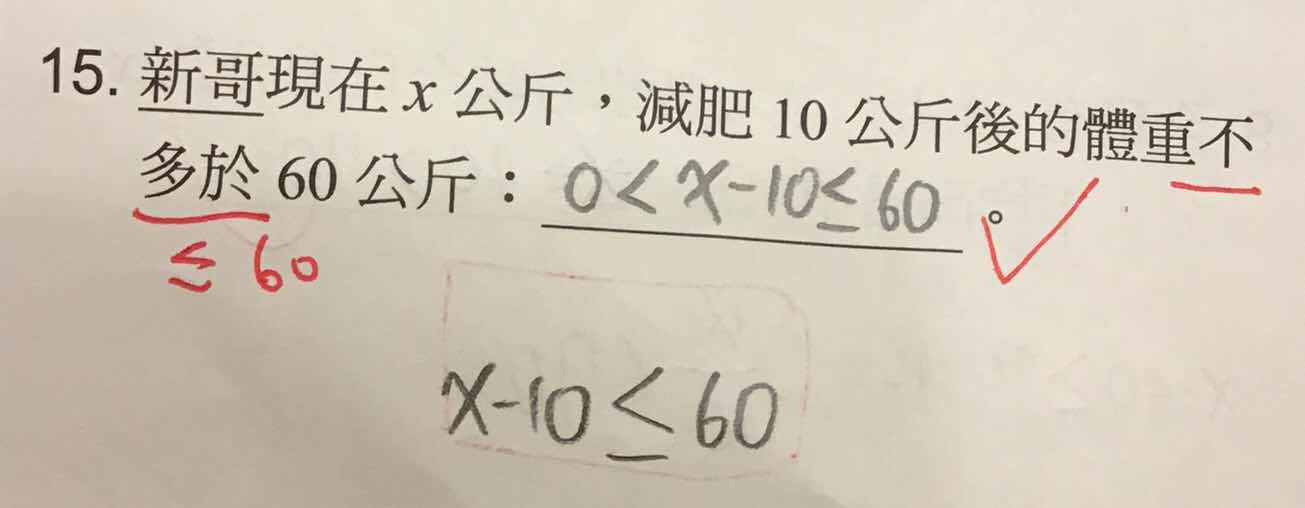 15. 新哥現在 x 公斤，減肥 10 公斤後的體重不
多於 60 公斤：0 < x - 10 ≤ 60。
≤ 60
x - 10 ≤ 60